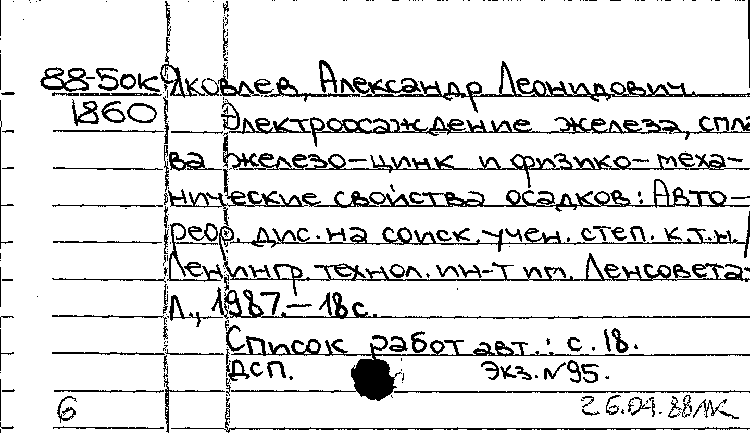 88-50к Яковлев, Александр Леонидович.
1860 Электроосаждение железа, спла
ва железо-цинк и физико-меха-
нические свойства осадков: Авто-
реф. дис. на соиск. учен. степ. к.т.н. /
Ленингр. технол. ин-т им. Ленсовета.
Л., 1987. – 18 с.
Список работ авт.: с. 18.
ДСП. Экз. №95.
6 26.04.88